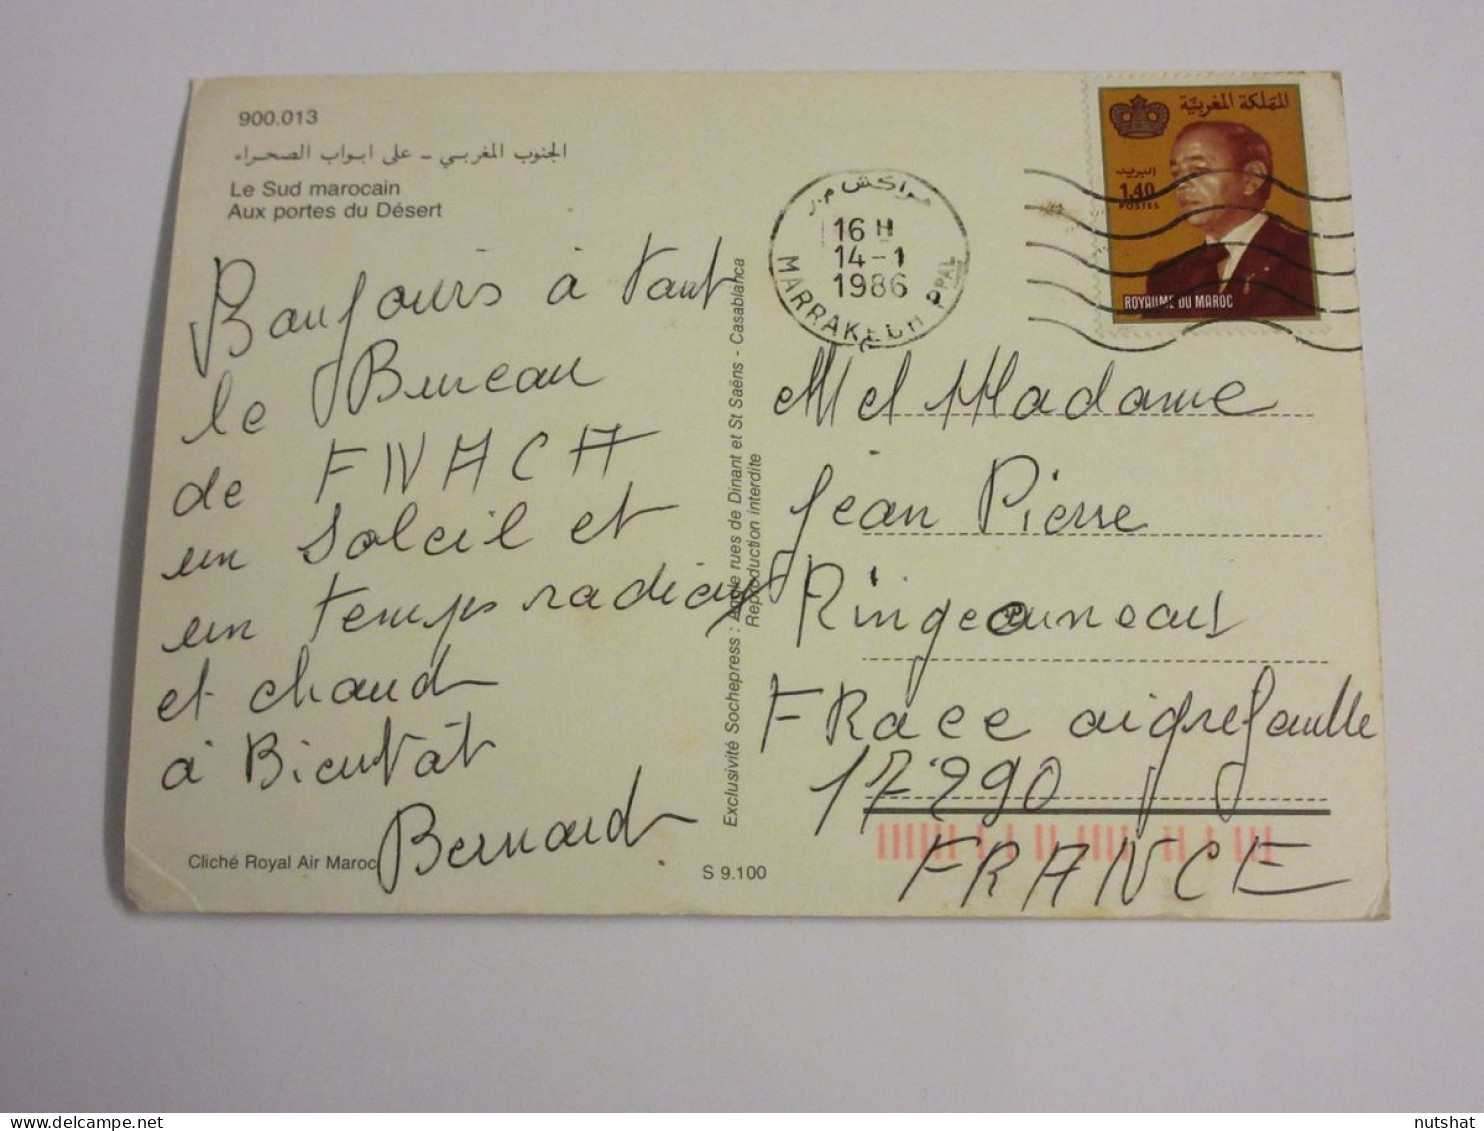 900.013
الجنوب المغربي - على ابواب الصحراء
Le Sud marocain
Aux portes du Désert
Bonjours à tout
le Bureau
de FNACA
un soleil et
un temps radieux
et chaud
à Bientôt
Bernard
Cliché Royal Air Maroc
S 9.100
Exclusivité Sochepress : Angle rues de Dinant et St Saëns - Casablanca
Reproduction interdite
مراكش م.ر
16 H
14-1
1986
MARRAKECH PPAL
المملكة المغربية
البريد
1,40
POSTES
ROYAUME DU MAROC
M et Madame
Jean Pierre
Ringeauneau
FRace aigrefeuille
17290
FRANCE
nutshat